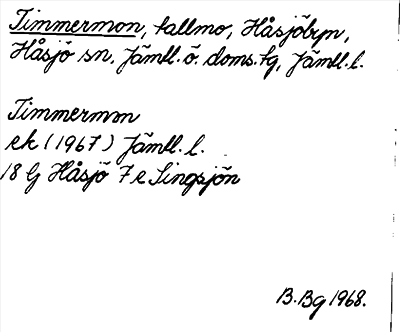 Timmermon, tallmo, Håsjöbyn,
Håsjö sn, Jämtl. ö. doms. tg, Jämtl. l.
Timmermon
ek (1967) Jämtl. l.
18 G Håsjö 7 e Singsjön
B. Bg 1968.